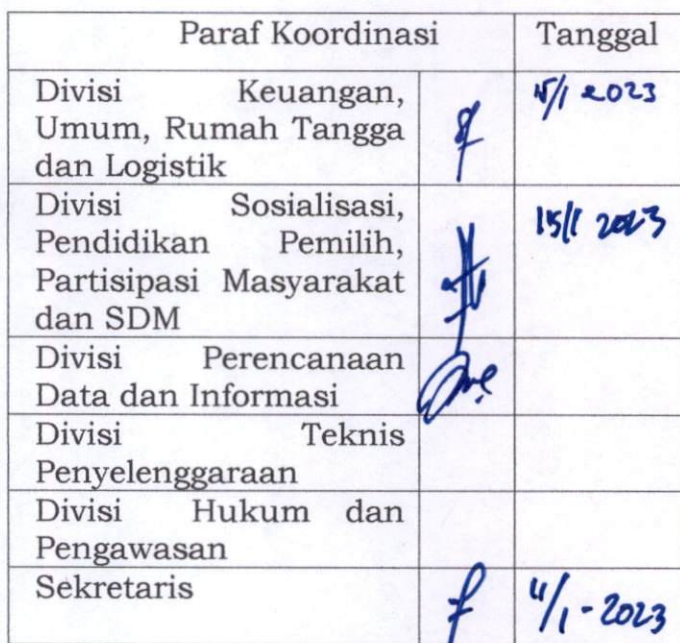 Paraf Koordinasi Tanggal
Divisi Keuangan, 15/1 2023
Umum, Rumah Tangga
dan Logistik
Divisi Sosialisasi, 15/1 2023
Pendidikan Pemilih,
Partisipasi Masyarakat
dan SDM
Divisi Perencanaan
Data dan Informasi
Divisi Teknis
Penyelenggaraan
Divisi Hukum dan
Pengawasan
Sekretaris